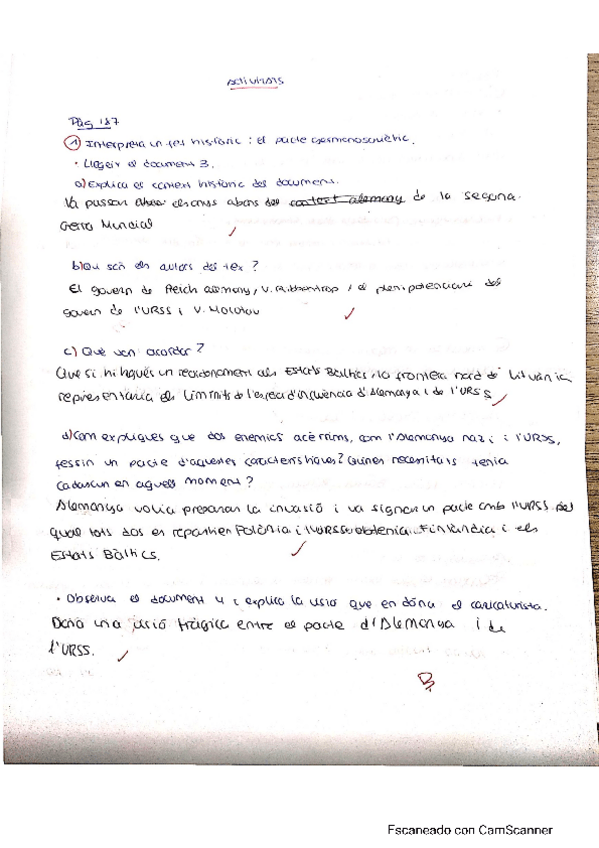 Activitats
Pàg 187
1 Interpreta un fet històric: el pacte germanosoviètic.
· Llegeix el document 3.
a) Explica el context històric del document.
Va passar abans del context alemany de la segona
Gerra Mundial
b) Qui són els autors del tex?
El govern de Reich alemany, V. Ribbentrop i el plenipotenciari del
govern de l'URSS i V. Molotov
c) Què van acordar?
Que si hi hagués un reordenament als Estats Bàltics, la frontera nord de Lituània
representaria els límits de l'esfera d'influència d'Alemanya i de l'URSS
d) Com expliques que dos enemics acèrrims, com l'Alemanya nazi i l'URSS,
fessin un pacte d'aquestes característiques? Quines necessitats tenia
cadascun en aquell moment?
Alemanya volia preparar la invasió i va signar un pacte amb l'URSS del
qual tots dos es repartien Polònia i l'URSS obtenia Finlàndia i els
Estats Bàltics.
· Observa el document 4 i explica la visió que en dóna el caricaturista.
Dona una visió tràgica entre el pacte d'Alemanya i de
l'URSS.
B.
Escaneado con CamScanner